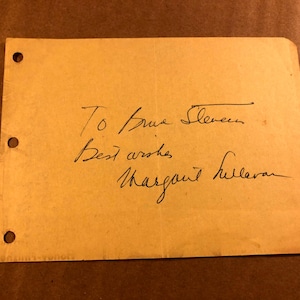 To Bruce Stevens
Best wishes
Margaret Sullavan